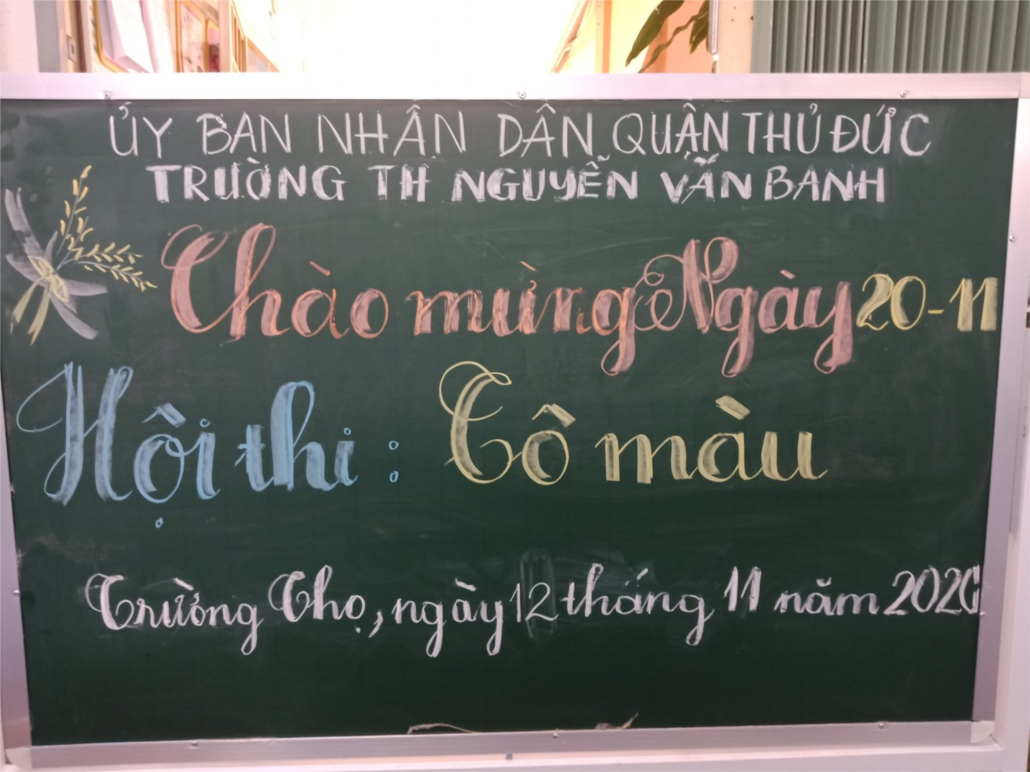 ỦY BAN NHÂN DÂN QUẬN THỦ ĐỨC
TRƯỜNG TH NGUYỄN VĂN BANH
Chào mừng Ngày 20-11
Hội thi : Tô màu
Trường Thọ, ngày 12 tháng 11 năm 2020